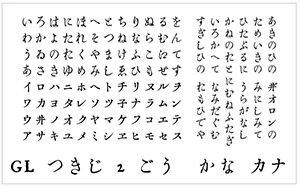 あきのひの　ヰオロンの
ためいきの　みにしみて
ひたぶるに　うらがなし
かねのおとにむねふたぎ
いろかへて　なみだぐむ
すぎしひの　おもひでや
いろはにほへとちりぬるを
わかよたれそつねならむん
うゐのおくやまけふこえて
あさきゆめみしゑひもせす
イロハニホヘトチリヌルヲ
ワカヨタレソツネナラムン
ウヰノオクヤマケフコエテ
アサキユメミシヱヒモセス
GL つきじ 2 ごう　かな カナ